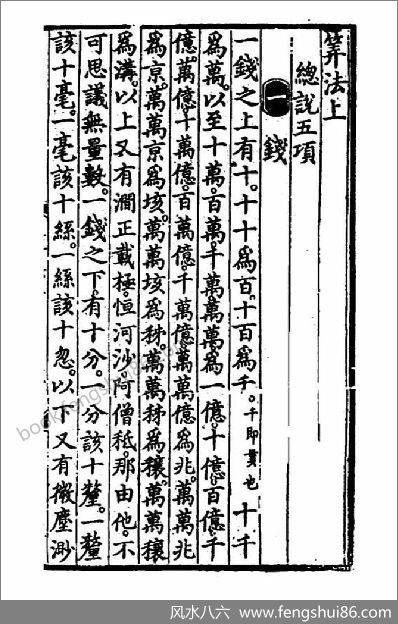 筭法上
總説五項
一 錢
一錢之上有十。十十爲百。十百爲千。千即貫也 十千
爲萬。以至十萬。百萬。千萬。萬萬爲一億。十億。百億。千
億。萬億。十萬億。百萬億。千萬億。萬萬億爲兆。萬萬兆
爲京。萬萬京爲垓。萬萬垓爲秭。萬萬秭爲穰。萬萬穰
爲溝。以上又有澗正載極。恒河沙。阿僧祗。那由他。不
可思議無量數。一錢之下。有十分。一分該十釐。一釐
該十毫。一毫該十絲。一絲該十忽。以下又有微塵渺
风水八六 www.fengshui86.com